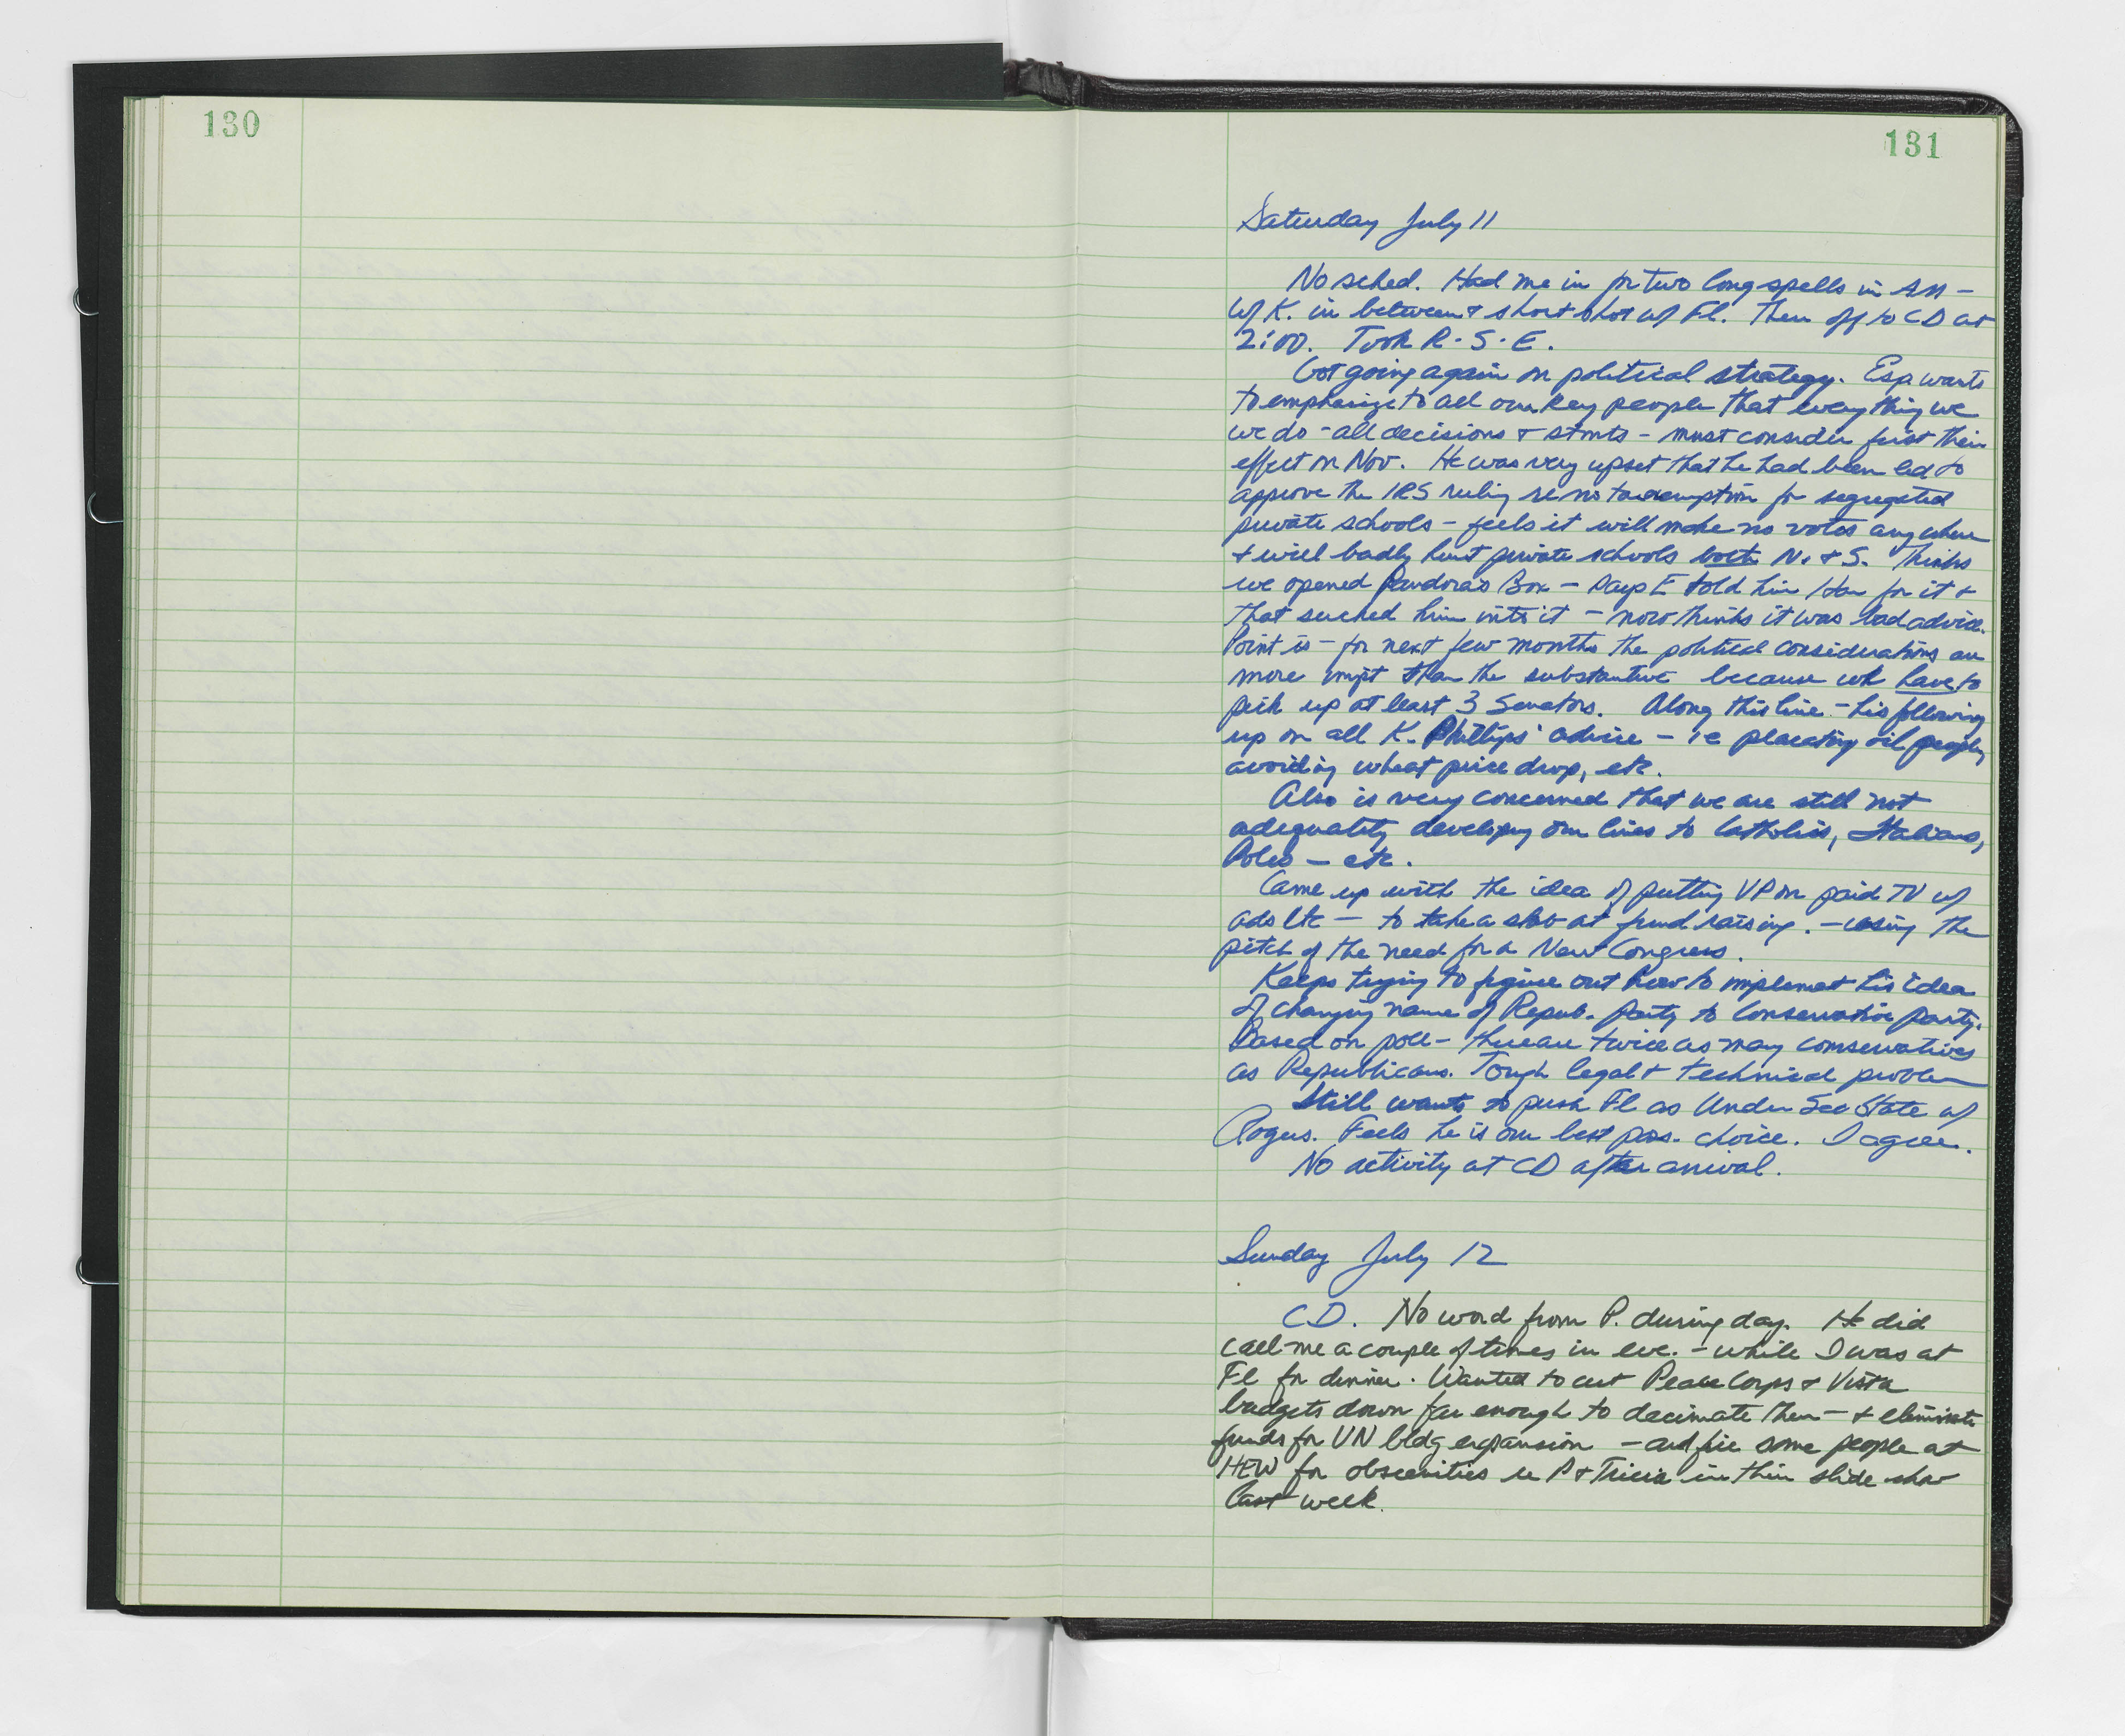 130
131
Saturday July 11
No sched. Had me in for two long spells in AM -
w/ K. in between & short shot w/ Fl. Then off to CD at
2:00. Took R. S. E.
Got going again on political strategy. Esp. wants
to emphasize to all our key people that everything we
we do - all decisions & stmts - must consider first their
effect on Nov. He was very upset that he had been led to
approve the IRS ruling re no tax exemption for segregated
private schools - feels it will make no votes anywhere
& will badly hurt private schools both N. & S. Thinks
we opened Pandora's Box - Says E told him I for it &
that sucked him into it - now thinks it was bad advice.
Point is - for next few months the political considerations are
more impt than the substantive because we have to
pick up at least 3 Senators. Along this line - his following
up on all K. Phillips' advice - ie placating oil people,
avoiding wheat price drop, etc.
Also is very concerned that we are still not
adequately developing our lines to Catholics, Italians,
Poles - etc.
Came up with the idea of putting VP on paid TV w/
ads etc - to take a stab at fund raising. - using the
pitch of the need for a New Congress.
Keeps trying to figure out how to implement his idea
of changing name of Repub. party to Conservative party.
Based on poll - there are twice as many conservatives
as Republicans. Tough legal & technical problem
Still wants to push Fl as Under Sec State w/
Rogers. Feels he is our best pos. choice. I agree.
No activity at CD after arrival.
Sunday July 12
CD. No word from P. during day. He did
call me a couple of times in eve. - while I was at
Fl for dinner. Wanted to cut Peace Corps & Vista
budgets down far enough to decimate them - & eliminate
funds for UN bldg expansion - and fire some people at
HEW for obscenities re P & Tricia in their slide show
last week.